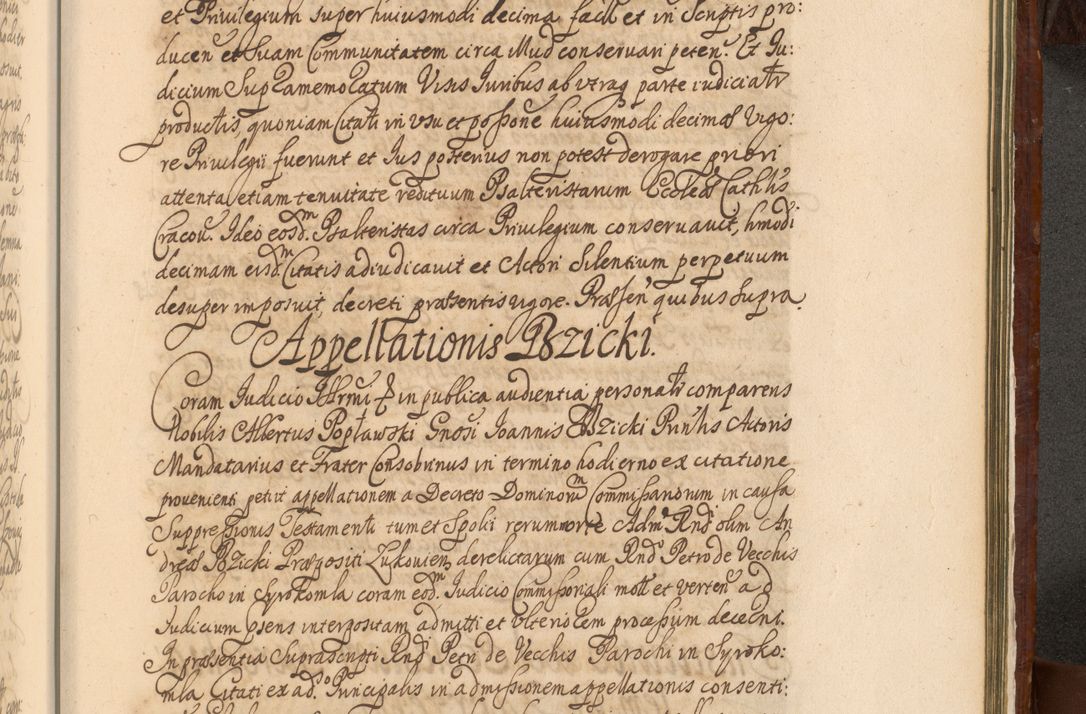 et Privilegium super huiusmodi decima fact et in Scriptis pro:
ducen et Suam Communitatem circa illud conservari peten. Et Iu:
dicium Supramemoratum Visis Iuribus ab utraq parte iudicialr
productis, quoniam Citati in usu et possone huiusmodi decimæ vigo:
re Privilegii fuerunt et Ius posterius non potest derogare priori
attenta etiam tenuitate redituum Psalteristarum Ecclesæ Cathlis
Cracov. Ideo eosdm Psalteristas circa Privilegium conservavit, hmodi
decimam eisdm Citatis adiudicavit et Actori Silentium perpetuum
desuper imposuit, decreti præsentis vigore. Præsen quibus supra
Appellationis Bzicki.
Coram Iudicio Illrmi & in publica audientia personalr comparens
Nobilis Albertus Popławski Gnosi Ioannis Bzicki Prin​lis Actoris
Mandatarius et Frater Consobrinus in termino hodierno ex citatione
provenienti petiit appellationem a Decreto Dominorum Commissariorum in causa
Suppressionis Testamenti tum et Spolii rerum morte Adm Rnd olim An
dreæ Bzicki Præpositi Zukovien derelictarum cum Rndo Petro de Vecchis
Parocho in Syrokomla coram eodm Iudicio Commissoriali mot et verten ad
Iudicium psens interpositam admitti et ulteriorem processum decerni.
In præsentia Suprascripti Rnd Petri de Vecchis Parochi in Syroko:
mla Citati ex advo Principalis in admissionem appellationis consenti: